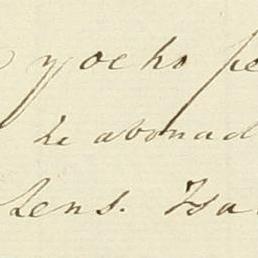 y ocho pe
he abonad
Rens. Isa